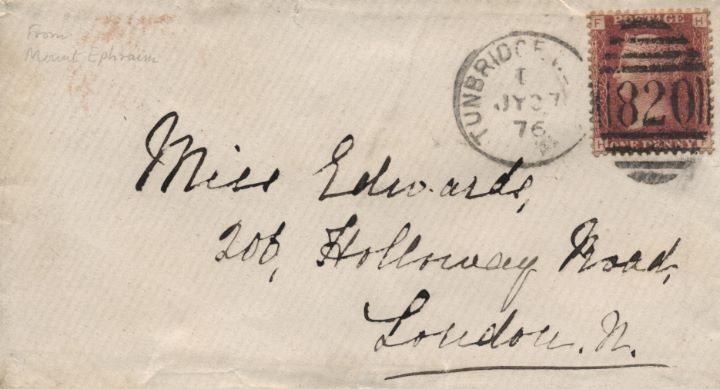 From
Mount Ephraim
TUNBRIDGE
JY 27
76
F POSTAGE H
820
ONE PENNY
Miss Edwards,
206, Holloway Road,
London. N.